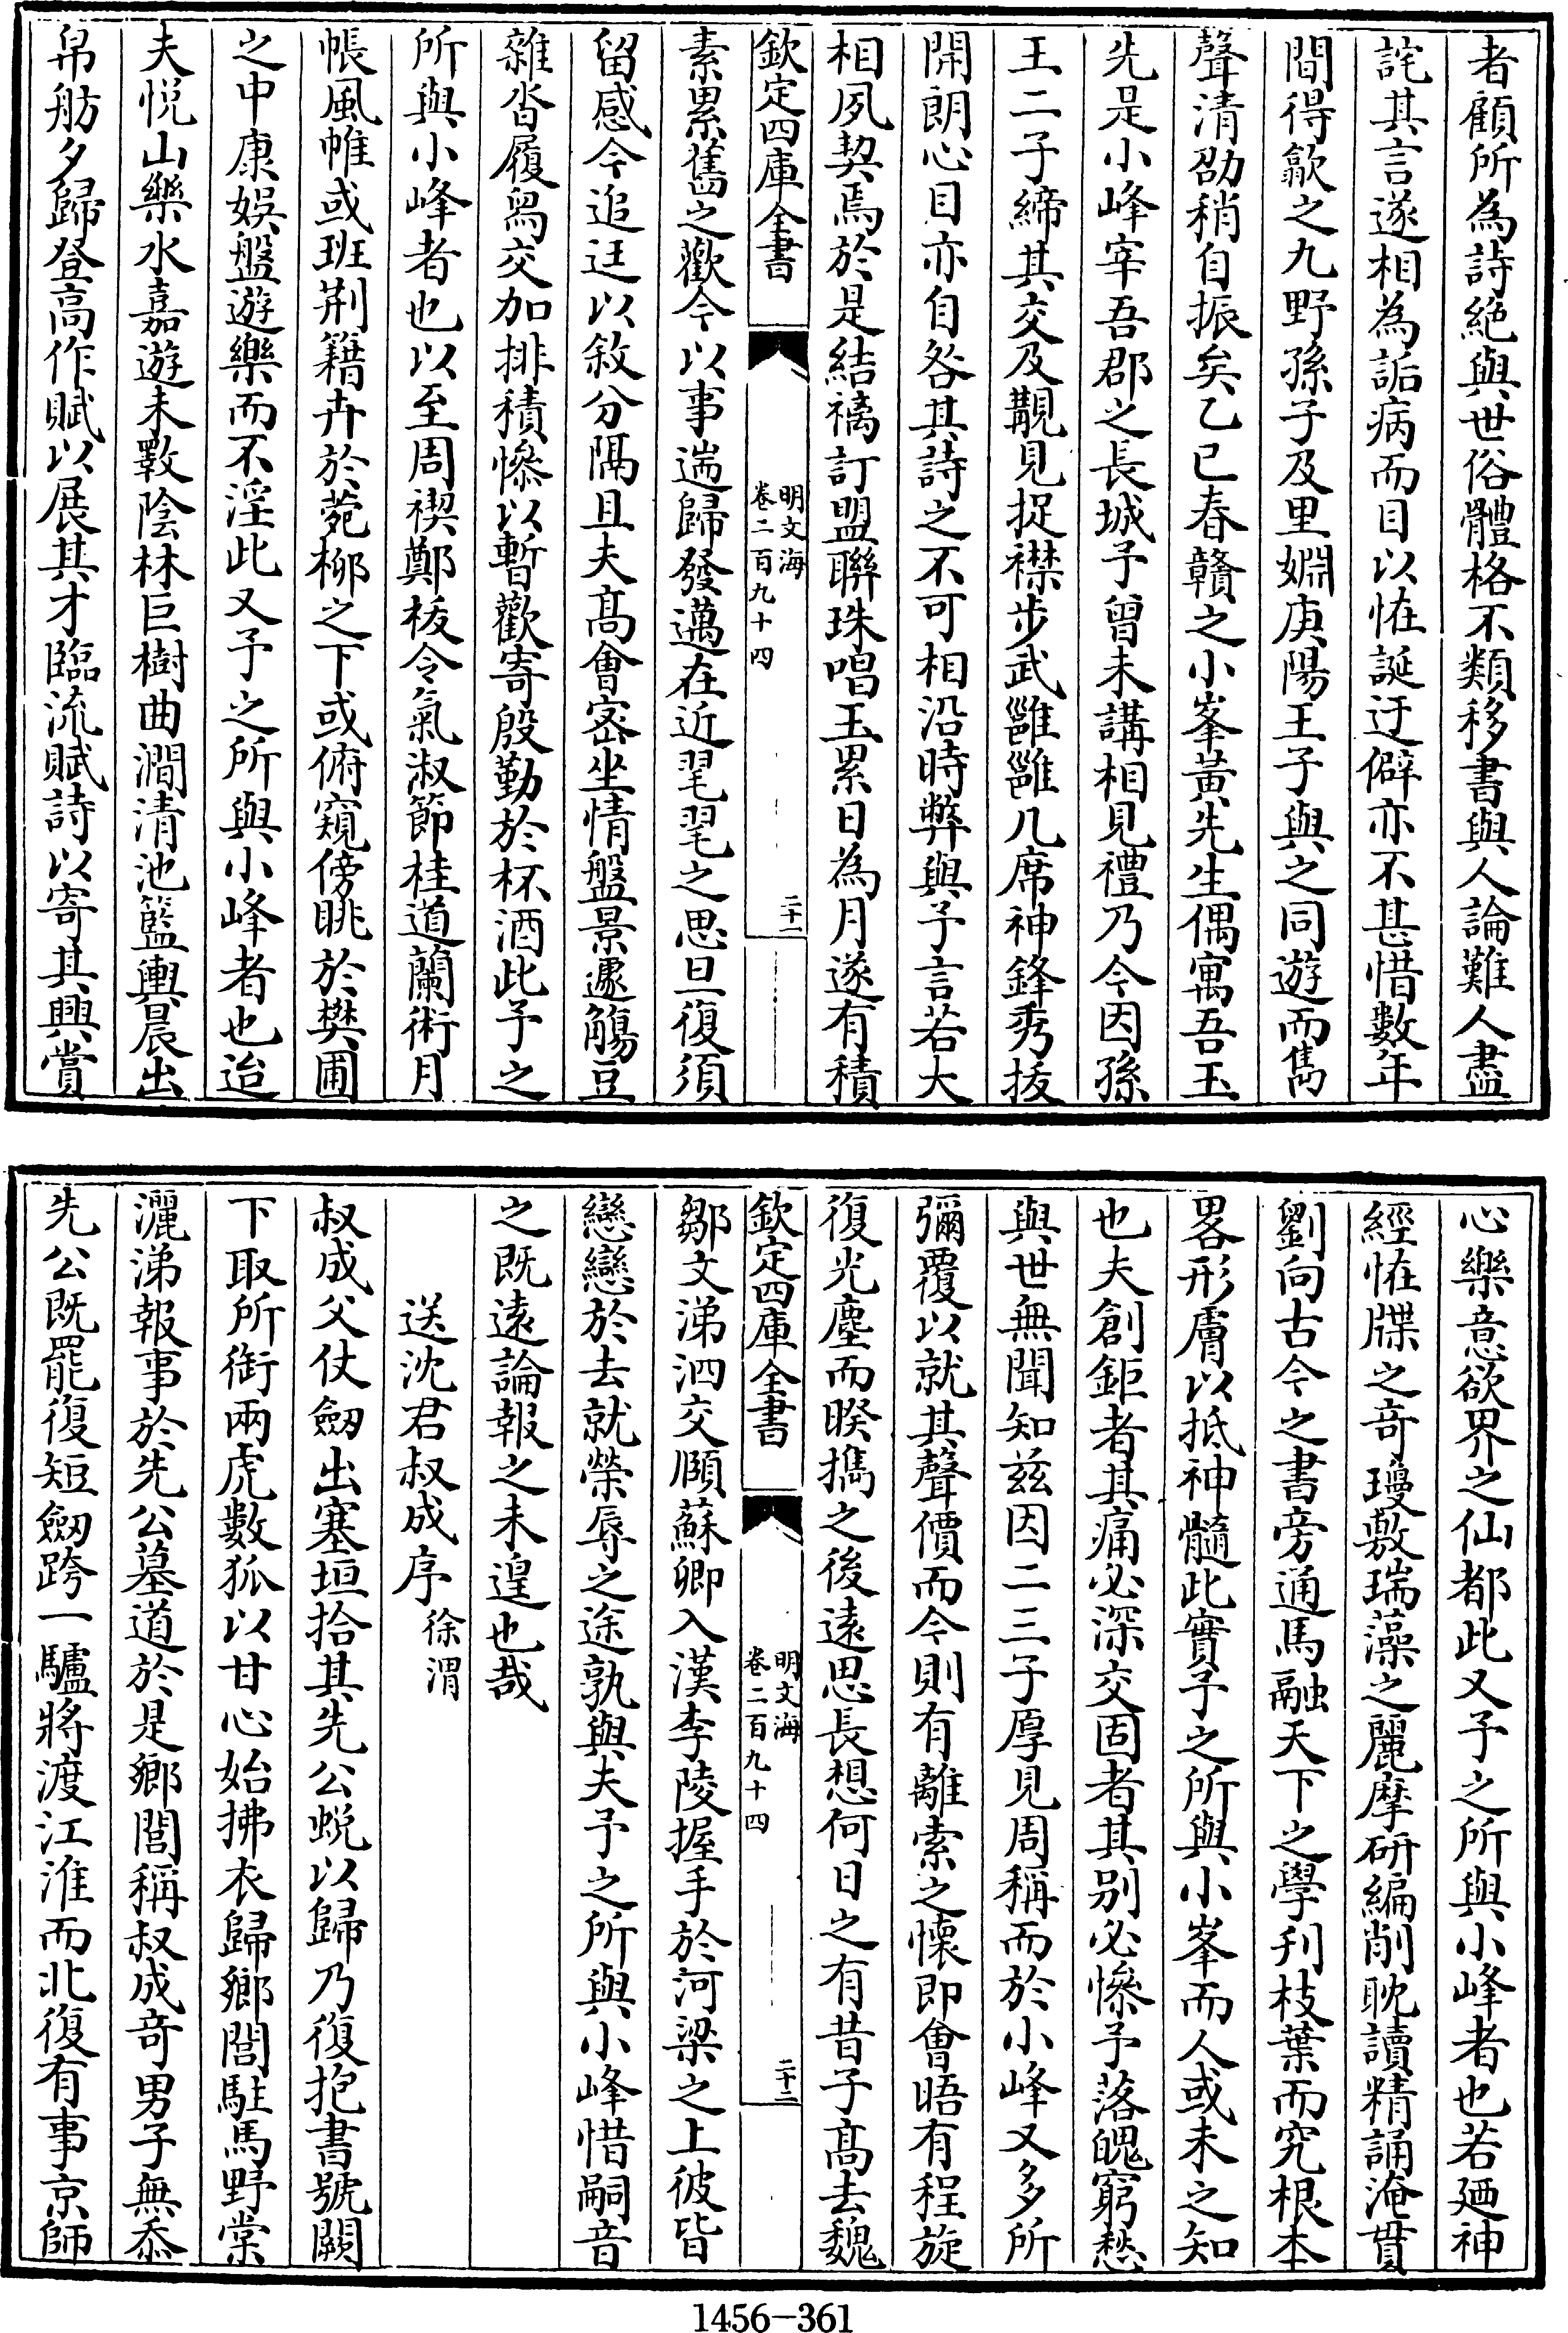 者顧所為詩絶與世俗體格不類移書與人論難人盡
詫其言遂相為詬病而目以恠誕迂僻亦不甚惜數年
間得歙之九野孫子及里婣庚陽王子與之同遊而雋
聲清劭稍自振矣乙巳春贛之小峯黃先生偶寓吾玉
先是小峰宰吾郡之長城予曾未講相見禮乃今因孫
王二子締其交及覯見捉襟步武雝雝几席神鋒秀拔
開朗心目亦自咎其詩之不可相沿時弊與予言若大
相夙契焉於是結褵訂盟聯珠唱玉累日為月遂有積
欽定四庫全書
明文海
卷二百九十四
二十一
素累舊之歡今以事遄歸發邁在近毣毣之思旦復須
留感今追迋以敘分隔且夫高會密坐情盤景遽觴豆
雜沓履舄交加排積慘以暫歡寄殷勤於杯酒此予之
所與小峰者也以至周禊鄭袚令氣淑節桂道蘭術月
帳風帷或班荆籍卉於菀柳之下或俯窺傍眺於樊圃
之中康娛盤遊樂而不淫此又予之所與小峰者也迨
夫悅山樂水嘉遊未斁陰林巨樹曲澗清池籃輿晨出
帛舫夕歸登高作賦以展其才臨流賦詩以寄其興賞
心樂意欲界之仙都此又予之所與小峰者也若廼神
經恠牒之奇璦敷瑞藻之麗摩研編削耽讀精誦淹貫
劉向古今之書旁通馬融天下之學刋枝葉而究根本
畧形膚以抵神髓此實予之所與小峯而人或未之知
也夫創鉅者其痛必深交固者其别必慘予落魄窮愁
與世無聞知兹因二三子厚見周稱而於小峰又多所
彌覆以就其聲價而今則有離索之懷即會晤有程旋
復光塵而暌攜之後遠思長想何日之有昔子高去魏
欽定四庫全書
明文海
卷二百九十四
二十二
鄒文涕泗交頤蘇卿入漢李陵握手於河梁之上彼皆
戀戀於去就榮辱之途孰與夫予之所與小峰惜嗣音
之既遠論報之未遑也哉
送沈君叔成序　徐渭
叔成父仗劒出塞垣拾其先公蛻以歸乃復抱書號闕
下取所銜兩虎數狐以甘心始拂衣歸鄉閭駐馬野棠
灑涕報事於先公墓道於是鄉閭稱叔成奇男子無忝
先公既罷復短劒跨一驢將渡江淮而北復有事京師
1456-361